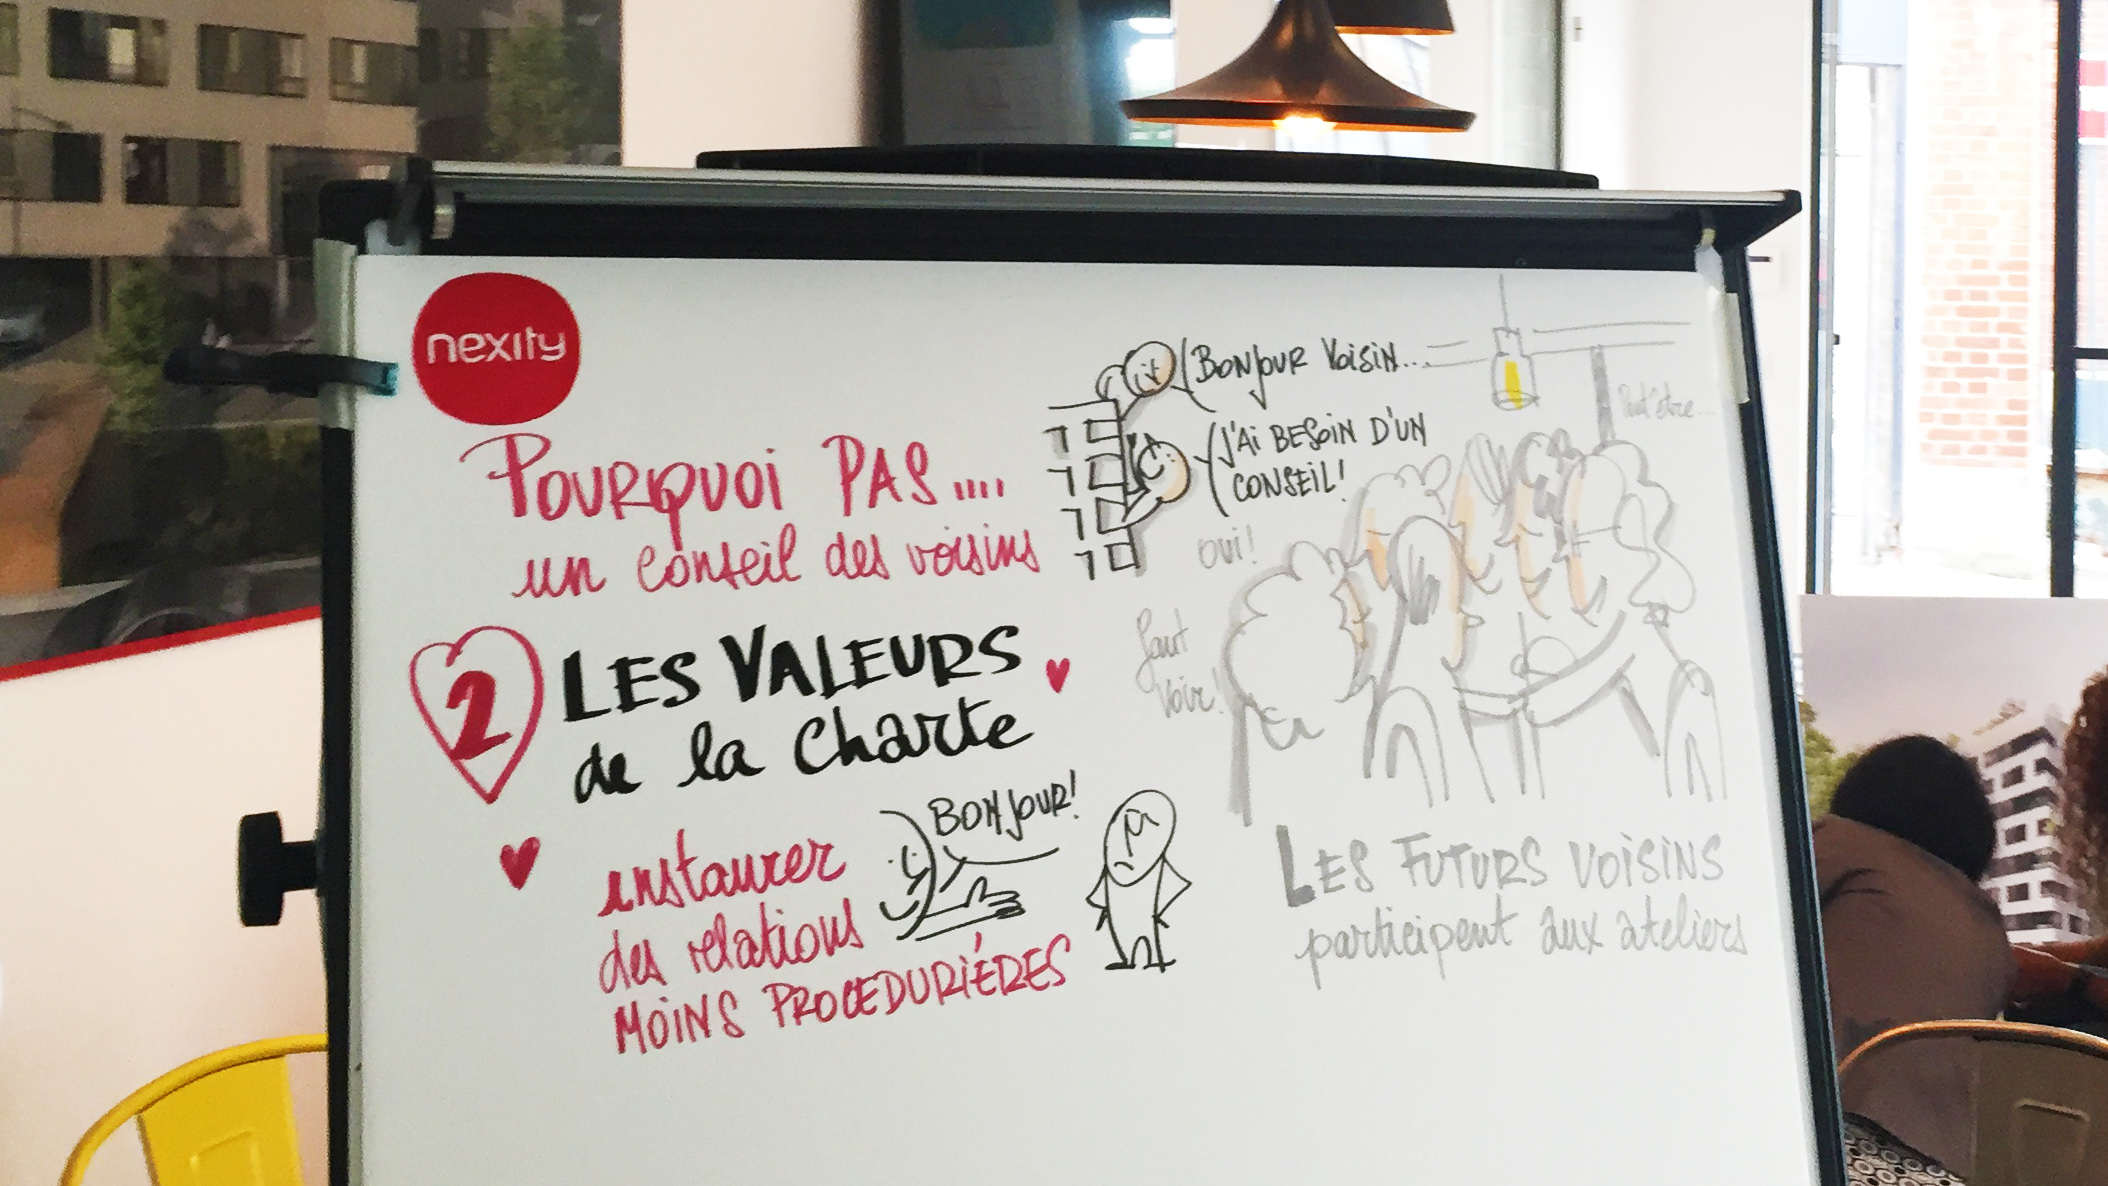 nexity
POURQUOI PAS....
un conseil des voisins
BONJOUR VOISIN...
J'AI BESOIN D'UN
CONSEIL!
Peut être...
oui!
faut
voir!
2 LES VALEURS
de la charte
instaurer
des relations
MOINS PROCEDURIÉRES
BONJOUR!
LES FUTURS VOISINS
participent aux ateliers